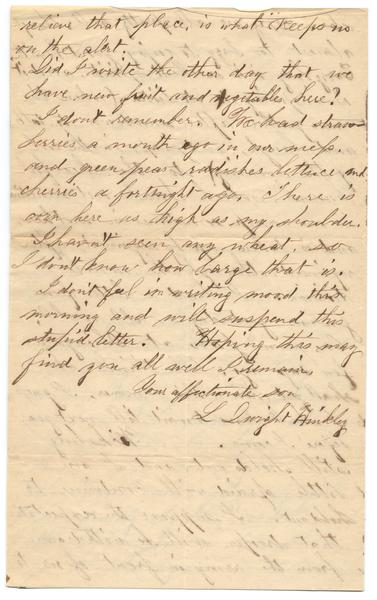 relieve that place, is what keeps us
on the alert.
Did I write the other day that we
have new fruit and vegitables here?
I dont remember. We had straw-
berries a month ago in our mess.
and green peas radishes lettuce and
cherries a fortnight ago. There is
corn here as high as my shoulder.
I havn't seen any wheat, so
I don't know how large that is.
I don't feel in writing mood this
morning and will suspend this
stupid letter. Hoping this may
find you all well I remain,
Your affectionate son
L Dwight Hinkley